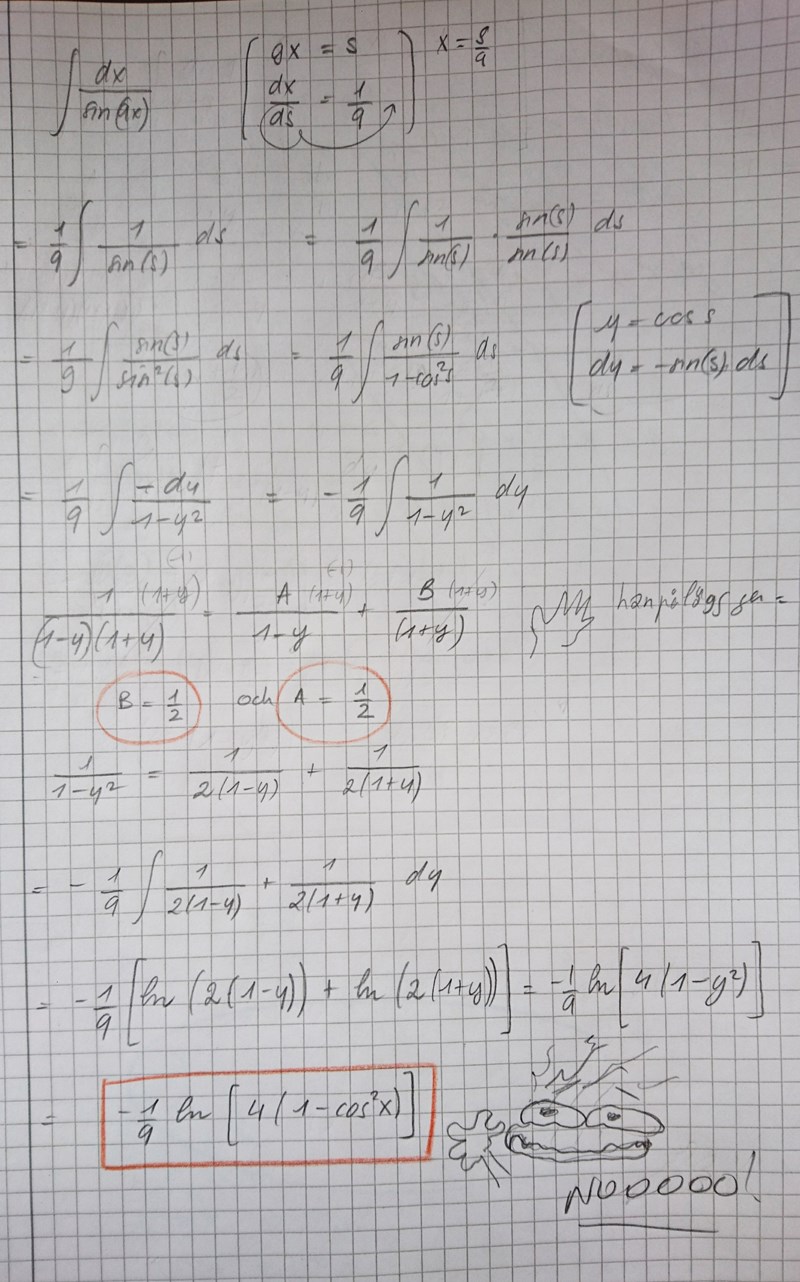 ∫ dx/sin(9x) [ 9x = s x = s/9
dx/ds = 1/9 ]
= 1/9 ∫ 1/sin(s) ds = 1/9 ∫ 1/sin(s) · sin(s)/sin(s) ds
= 1/9 ∫ sin(s)/sin²(s) ds = 1/9 ∫ sin(s)/1-cos²s ds [ y = cos s
dy = -sin(s) ds ]
= 1/9 ∫ -dy/1-y² = -1/9 ∫ 1/1-y² dy
1 (1+y)/(1-y)(1+y) = A (1+y)/1-y + B (1+y)/(1+y)
B = 1/2 och A = 1/2
1/1-y² = 1/2(1-y) + 1/2(1+y)
= -1/9 ∫ 1/2(1-y) + 1/2(1+y) dy
= -1/9 [ln (2(1-y)) + ln (2(1+y))] = -1/9 ln[4(1-y²)]
= -1/9 ln [4(1-cos²x)]
NOOOOO!